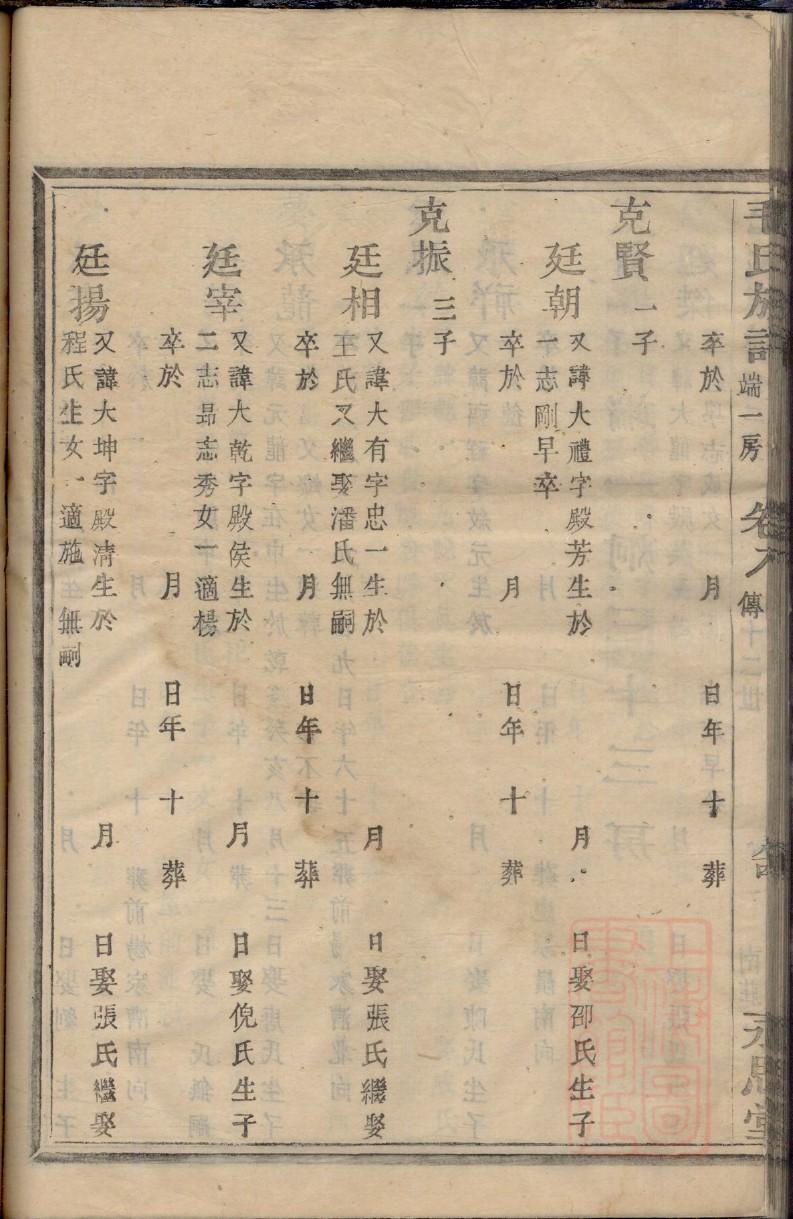 毛氏族譜 端一房 卷 傳 永思堂
卒於 月 日年 十 葬
克賢 一子
廷朝 又諱大禮字殿芳生於 月 日娶邵氏生子
一志剛早卒
卒於 月 日年 十 葬
克振 三子
廷相 又諱大有字忠一生於 月 日娶張氏繼娶
王氏又繼娶潘氏無嗣
卒於 月 日年 十 葬
廷宰 又諱大乾字殿侯生於 月 日娶倪氏生子
二志昻志秀女一適楊
卒於 月 日年 十 葬
廷揚 又諱大坤字殿清生於 月 日娶張氏繼娶
程氏生女一適施 無嗣